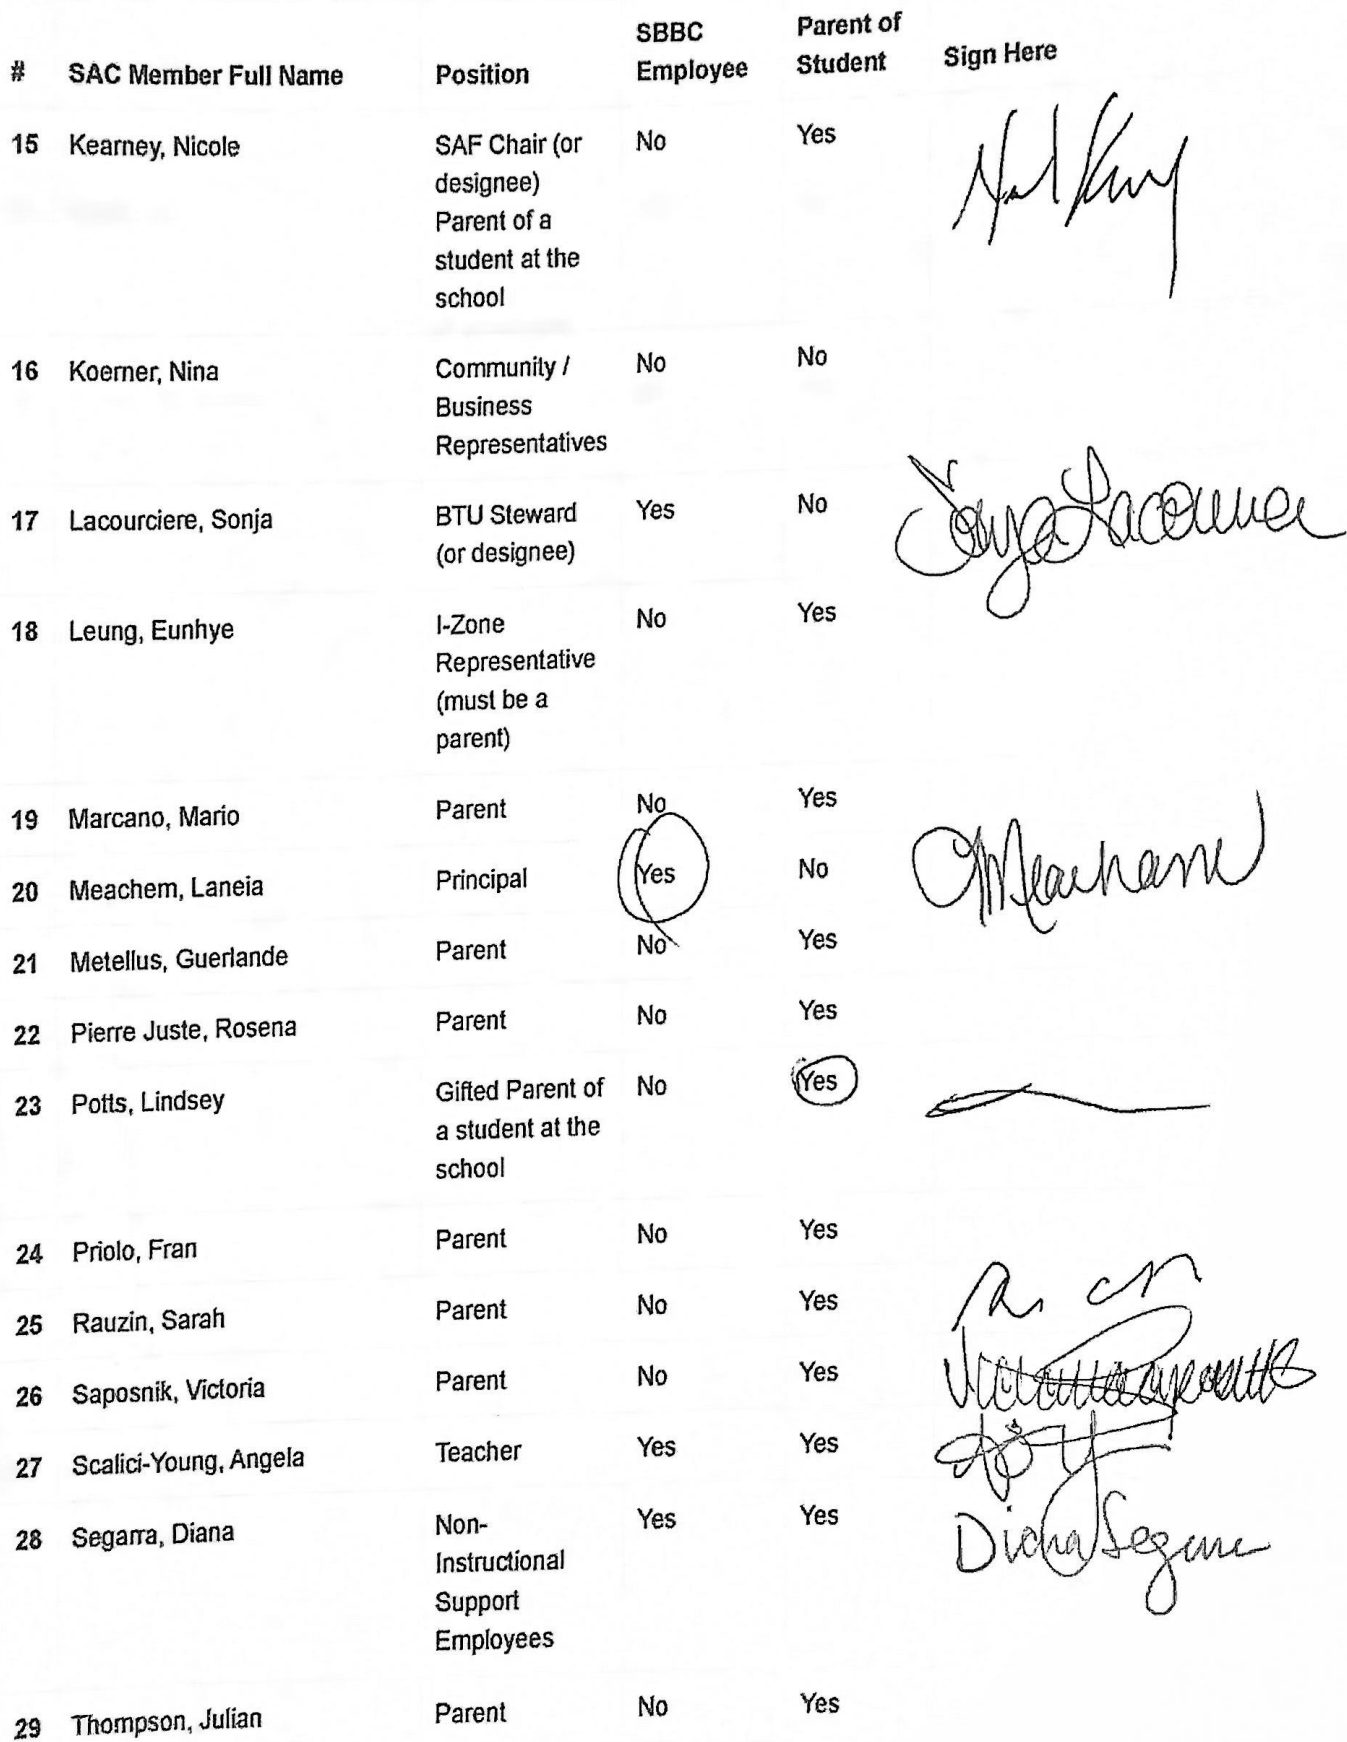 # SAC Member Full Name Position SBBC Employee Parent of Student Sign Here
15 Kearney, Nicole SAF Chair (or No Yes
designee)
Parent of a
student at the
school
16 Koerner, Nina Community / No No
Business
Representatives
17 Lacourciere, Sonja BTU Steward Yes No
(or designee)
18 Leung, Eunhye I-Zone No Yes
Representative
(must be a
parent)
19 Marcano, Mario Parent No Yes
20 Meachem, Laneia Principal Yes No
21 Metellus, Guerlande Parent No Yes
22 Pierre Juste, Rosena Parent No Yes
23 Potts, Lindsey Gifted Parent of No Yes
a student at the
school
24 Priolo, Fran Parent No Yes
25 Rauzin, Sarah Parent No Yes
26 Saposnik, Victoria Parent No Yes
27 Scalici-Young, Angela Teacher Yes Yes
28 Segarra, Diana Non- Yes Yes Diana
Instructional
Support
Employees
29 Thompson, Julian Parent No Yes